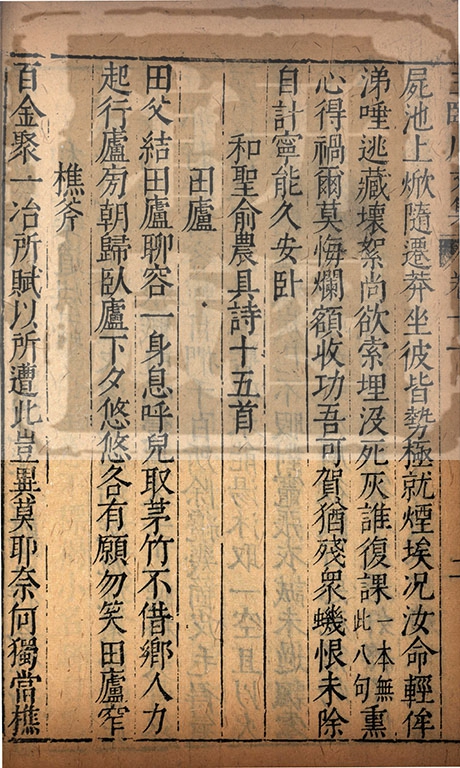 屍池上掀隨遷莽坐彼皆勢極就煙埃况汝命輕侔
涕唾逃藏壞絮尚欲索埋没死灰誰復課一本無此八句熏
心得禍爾莫悔爛額收功吾可賀猶殘衆蟣恨未除
自計寧能久安卧
和聖俞農具詩十五首
田廬
田父結田廬聊容一身息呼兒取茅竹不借鄉人力
起行廬旁朝歸卧廬下夕悠悠各有願勿笑田廬窄
樵斧
百金聚一冶所賦以所遭此豈異莫耶奈何獨當樵